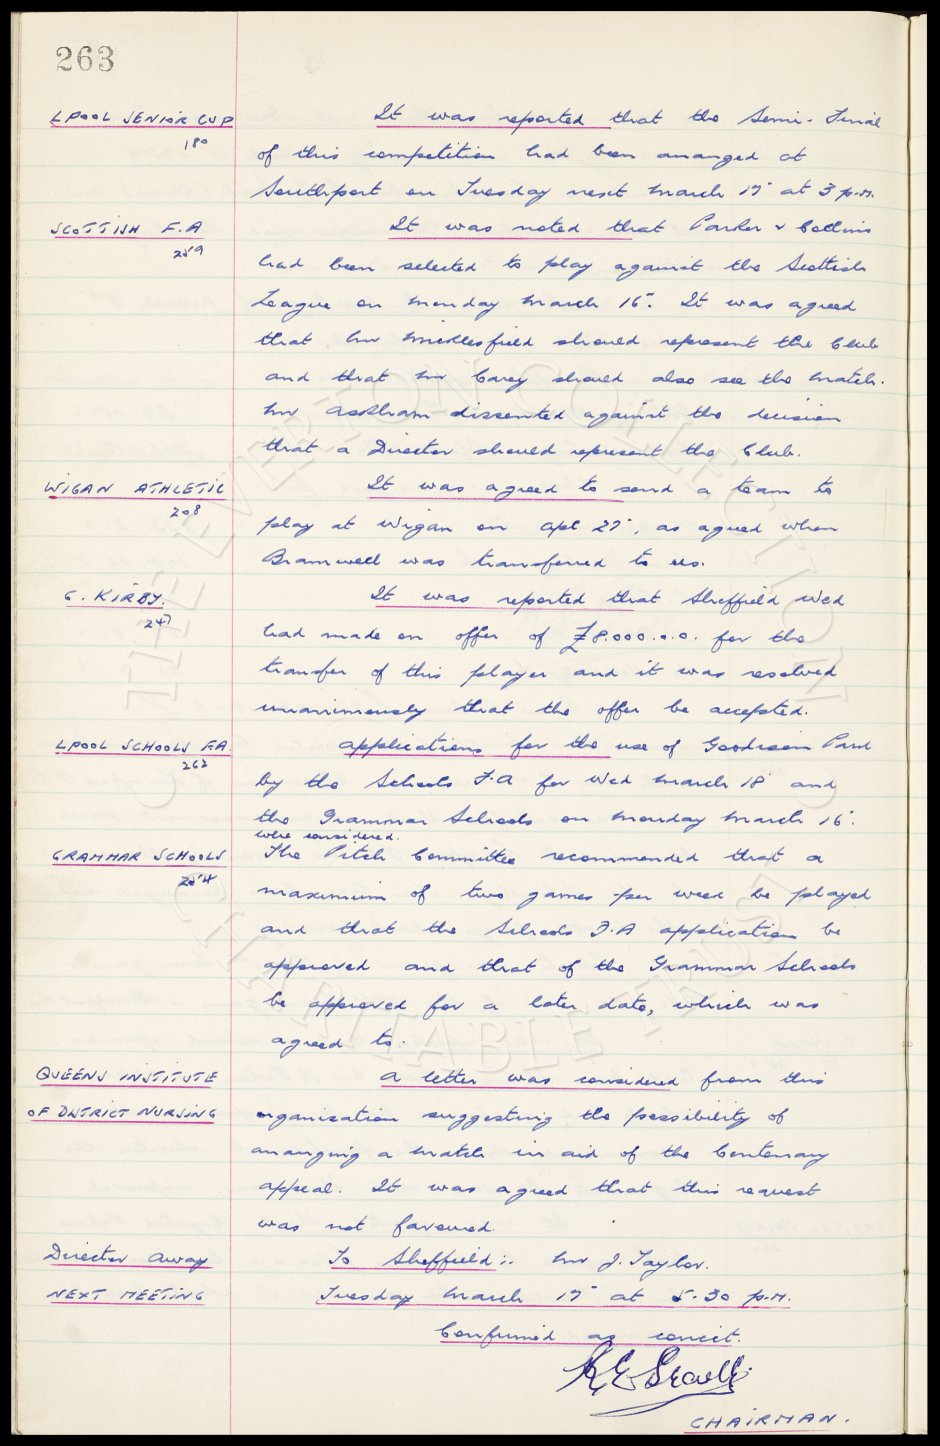 263
LPOOL SENIOR CUP
180
It was reported that the Semi-Final
of this competition had been arranged at
Southport on Tuesday next March 17" at 3 p.m.
SCOTTISH F.A
259
It was noted that Parker & Collins
had been selected to play against the Scottish
League on Monday March 16". It was agreed
that Mr Micklesfield should represent the Club
and that Mr Carey should also see the match.
Mr Askham dissented against the decision
that a Director should represent the Club.
WIGAN ATHLETIC
208
It was agreed to send a team to
play at Wigan on Apl 27", as agreed when
Bramwell was transferred to us.
G. KIRBY.
247
It was reported that Sheffield Wed
had made an offer of £8.000.0.0. for the
transfer of this player and it was resolved
unanimously that the offer be accepted.
LPOOL SCHOOLS F.A.
262
Applications for the use of Goodison Park
by the Schools F.A for Wed March 18" and
the Grammar Schools on Monday March 16".
were considered.
GRAMMAR SCHOOLS
254
The Pitch Committee recommended that a
maximum of two games per week be played
and that the Schools F.A application be
approved and that of the Grammar Schools
be approved for a later date, which was
agreed to.
QUEENS INSTITUTE
OF DISTRICT NURSING
A letter was considered from this
organisation suggesting the possibility of
arranging a match in aid of the Centenary
appeal. It was agreed that this request
was not favoured.
Director Away
To Sheffield:. Mr J. Taylor.
NEXT MEETING
Tuesday March 17" at 5.30 p.m.
Confirmed as correct.
CHAIRMAN.
THE EVERTON COLLECTION
CHARITABLE TRUST